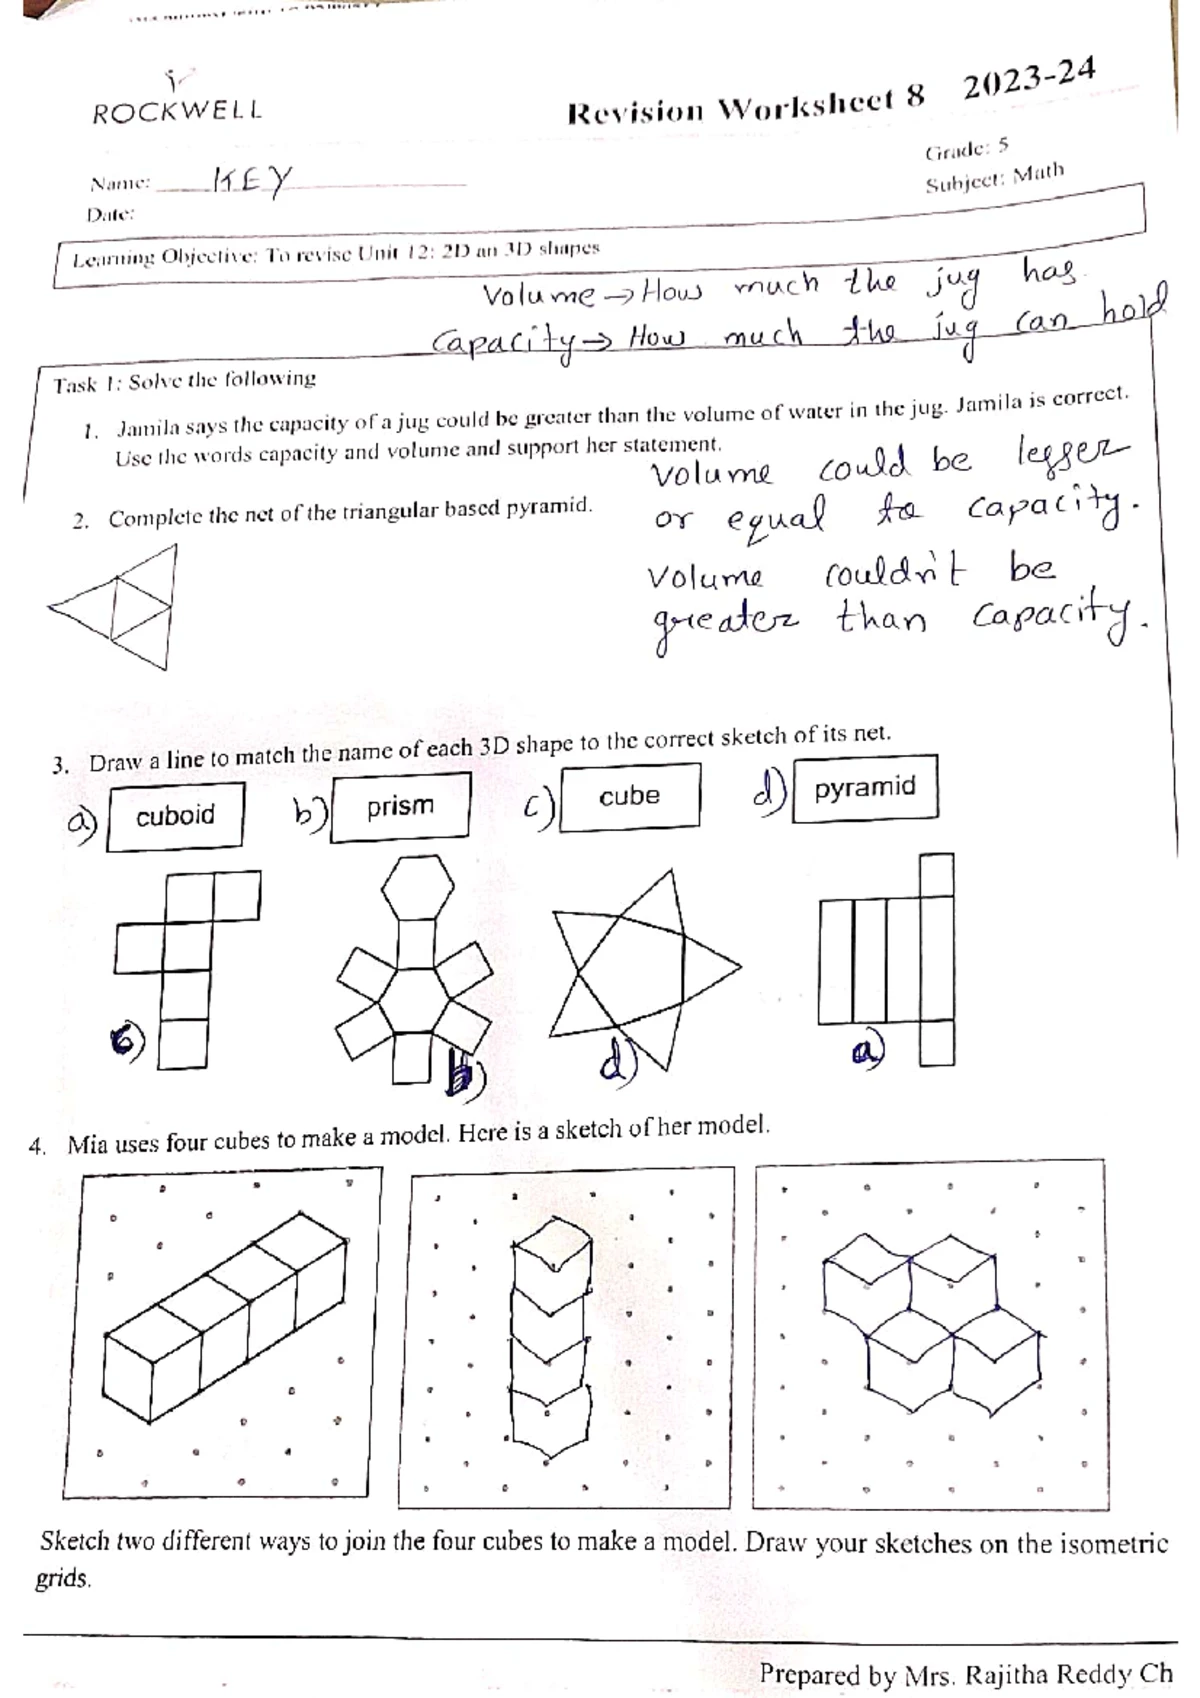 ROCKWELL
Revision Worksheet 8 2023-24
Grade: 5
Name: KEY
Subject: Math
Date:
Learning Objective: To revise Unit 12: 2D an 3D shapes
Volume → How much the jug has
Capacity → How much the jug can hold
Task 1: Solve the following
1. Jamila says the capacity of a jug could be greater than the volume of water in the jug. Jamila is correct.
Use the words capacity and volume and support her statement.
Volume could be lesser
or equal to capacity.
Volume couldn't be
greater than capacity.
2. Complete the net of the triangular based pyramid.
3. Draw a line to match the name of each 3D shape to the correct sketch of its net.
a) cuboid b) prism c) cube d) pyramid
c) b) d) a)
4. Mia uses four cubes to make a model. Here is a sketch of her model.
Sketch two different ways to join the four cubes to make a model. Draw your sketches on the isometric
grids.
Prepared by Mrs. Rajitha Reddy Ch